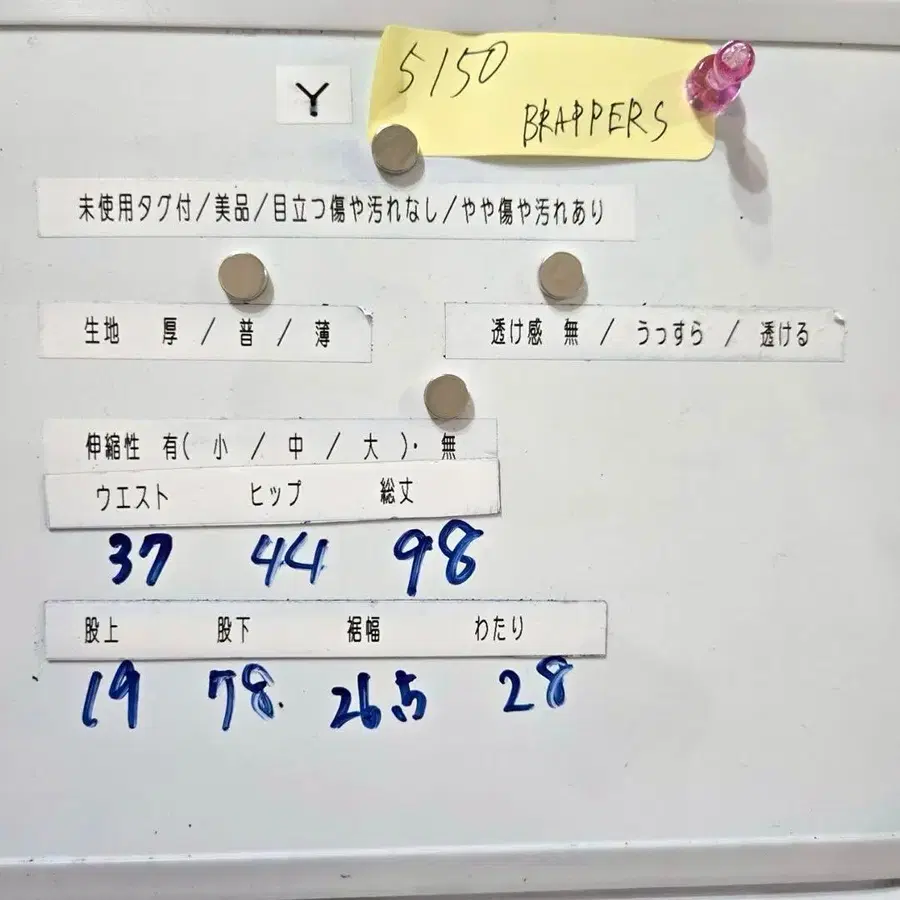 5150
Y
BRAPPERS
未使用タグ付/美品/目立つ傷や汚れなし/やや傷や汚れあり
生地 厚 / 普 / 薄
透け感 無 / うっすら / 透ける
伸縮性 有( 小 / 中 / 大 )・ 無
ウエスト ヒップ 総丈
37 44 98
股上 股下 裾幅 わたり
19 78. 26.5 28